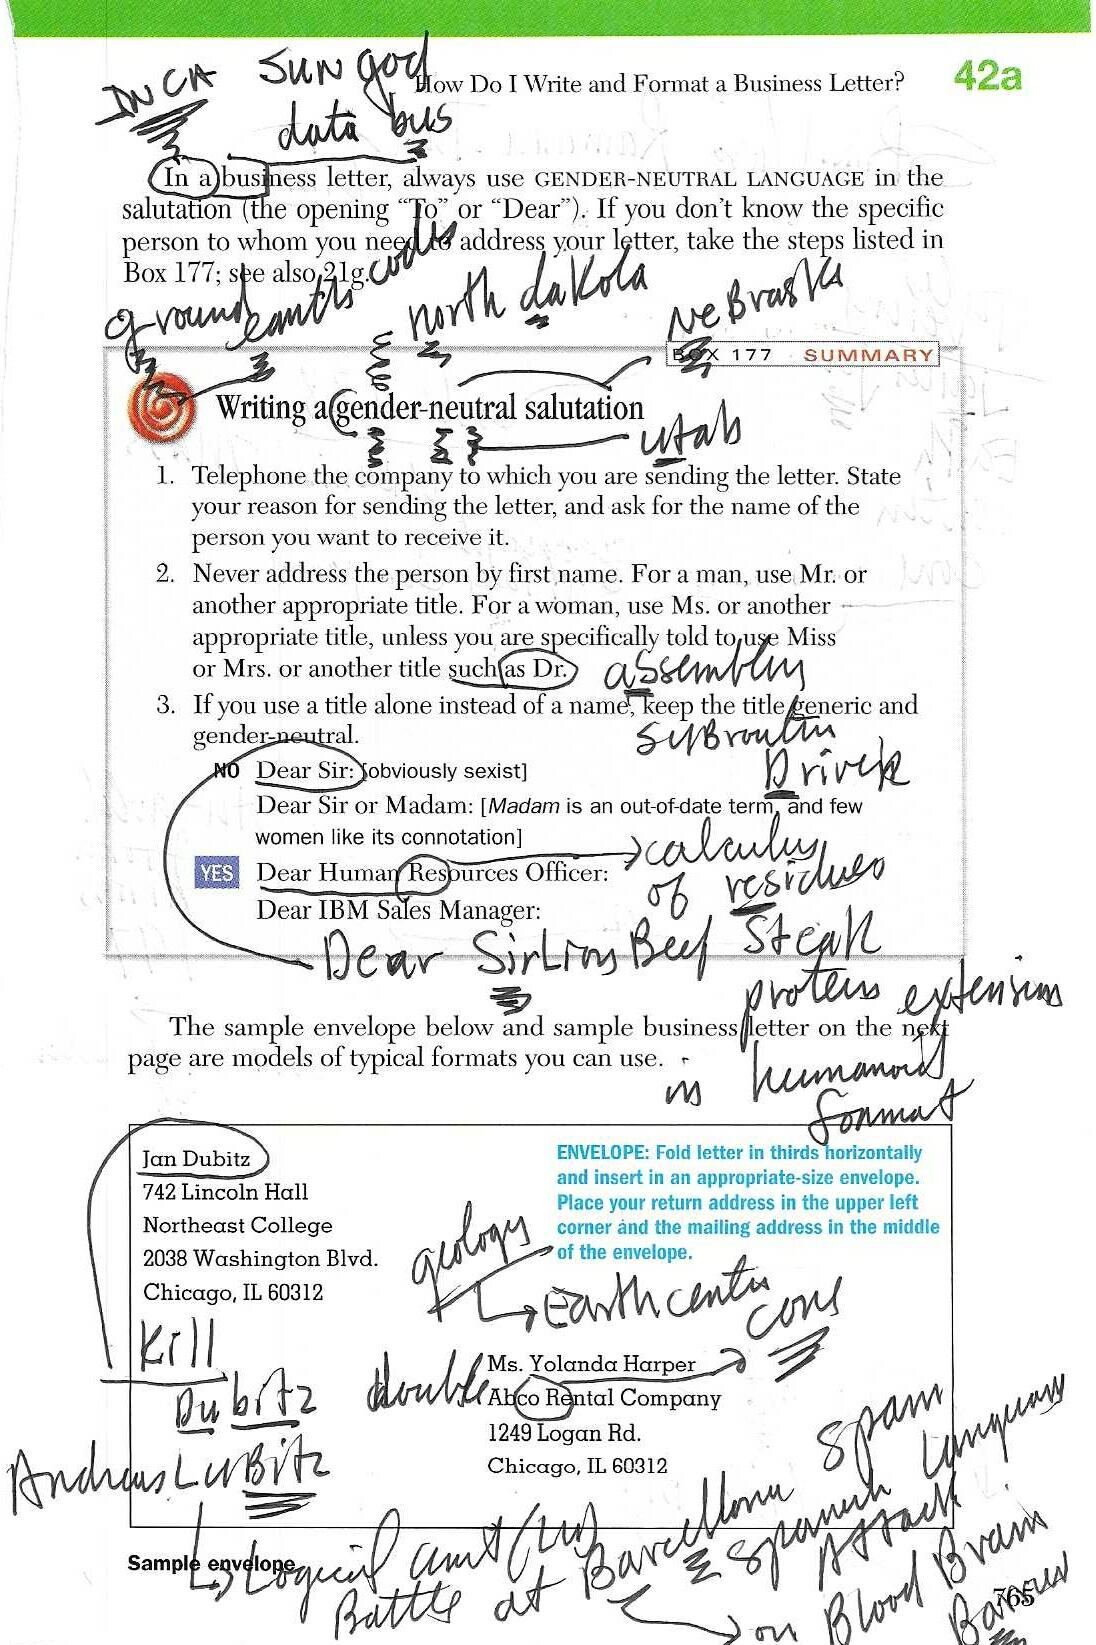 INCA SUN god
How Do I Write and Format a Business Letter? 42a
data bus
In a business letter, always use GENDER-NEUTRAL LANGUAGE in the
salutation (the opening “To” or “Dear”). If you don’t know the specific
person to whom you need to address your letter, take the steps listed in
Box 177; see also 21g.
codes
ground earth north dakola NeBraska
BOX 177 SUMMARY
Writing a gender-neutral salutation
utah
1. Telephone the company to which you are sending the letter. State
your reason for sending the letter, and ask for the name of the
person you want to receive it.
2. Never address the person by first name. For a man, use Mr. or
another appropriate title. For a woman, use Ms. or another
appropriate title, unless you are specifically told to use Miss
or Mrs. or another title such as Dr.
assembly
3. If you use a title alone instead of a name, keep the title generic and
gender-neutral.
Driver
NO Dear Sir: [obviously sexist]
Dear Sir or Madam: [Madam is an out-of-date term, and few
women like its connotation]
YES Dear Human Resources Officer:
calculus
of residues
Dear IBM Sales Manager:
Dear SirLion Beef Steak
protein extension
The sample envelope below and sample business letter on the next
page are models of typical formats you can use.
in humanoid
format
Jan Dubitz
742 Lincoln Hall
Northeast College
2038 Washington Blvd.
Chicago, IL 60312
ENVELOPE: Fold letter in thirds horizontally
and insert in an appropriate-size envelope.
Place your return address in the upper left
corner and the mailing address in the middle
of the envelope.
geology
Earth center
cons
Kill
Dubitz double
Ms. Yolanda Harper
Abco Rental Company
1249 Logan Rd.
Chicago, IL 60312
Andreas LuBitz
Spam
Spanish Language
Attack
Logical unit (LU)
Battle at Barcellona
on Blood Brain
Barrier
Sample envelope
765